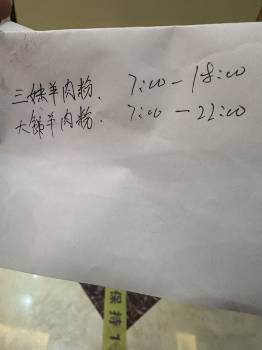 三妹羊肉粉. 7:00-18:00
大锅羊肉粉. 7:00-22:00
保持1